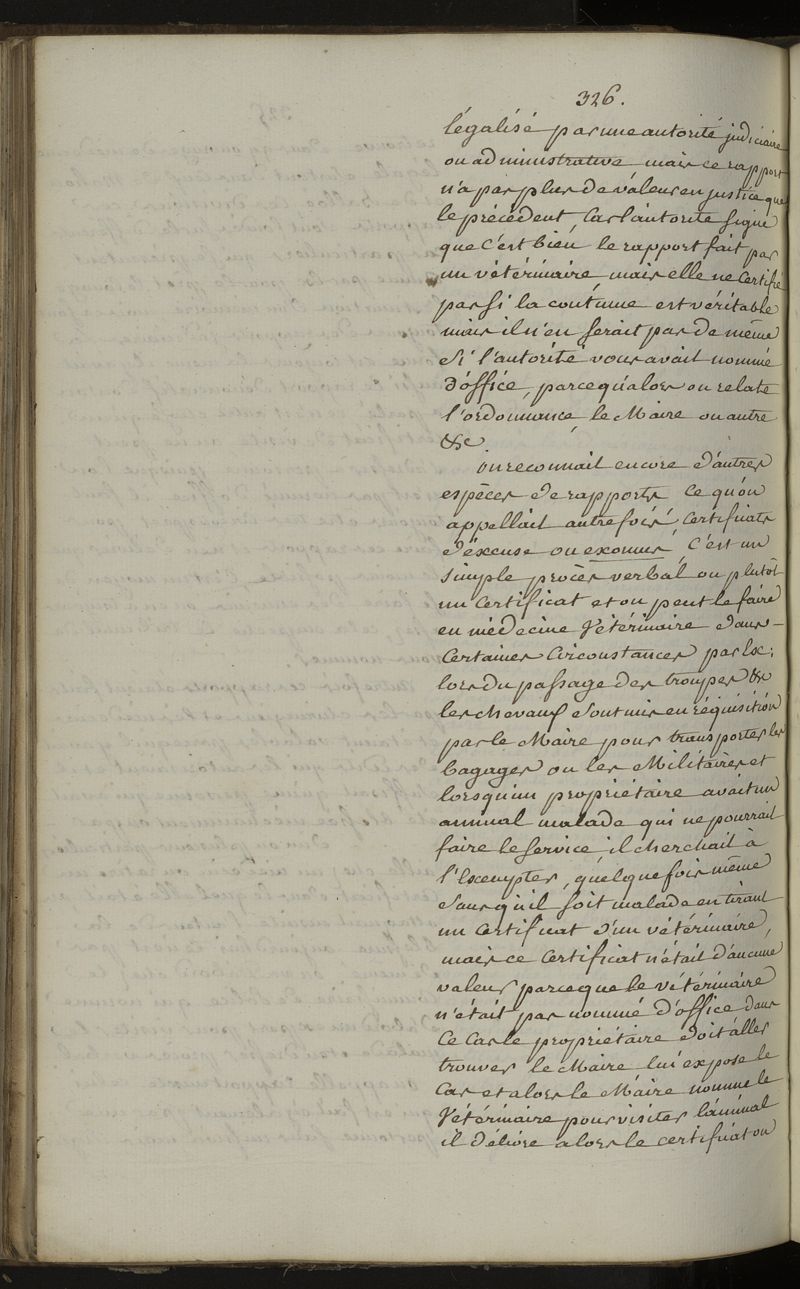 326.
légalisé par une autorité judiciaire
ou administrative mais ce rapport
n'a pas plus de valeur en justice que
le précédent, car l'autorité signe
que c'est bien le rapport fait par
un vétérinaire mais elle ne certifie
pas si la coutume est véritable
mais il n'en serait pas de même
si l'autorité vous avait nommé
d'office, parce qu'alors on relate
l'ordonnance, le Maire ou autre
&c
on reconnait encore d'autres
espèces de rapports ce qu'on
appellait autrefois, certificats
d'éxcuse ou exonnes, c'est un
simple procès verbal ou plutôt
un certificat et on peut le faire
en médecine Vétérinaire dans
certaines circonstances par Ex:
lors du passage des troupes &c
les chevaux sont mis en réquisition
par le Maire pour transporter les
bagages ou les Militaires et
lorsqu'un propriétaire avait un
animal malade qui ne pourrait
faire le service il cherchait à
l'Exempter, quelque fois même
sans qu'il soit malade en tirant
un certificat d'un vétérinaire,
mais ce certificat n'était d'aucune
valeur parce que le vétérinaire
n'était pas nommé d'office dans
ce cas le propriétaire doit aller
trouver le Maire lui expose le
cas et alors le Maire nomme le
Vétérinaire pour visiter l'animal
il délivre alors le certificat ou